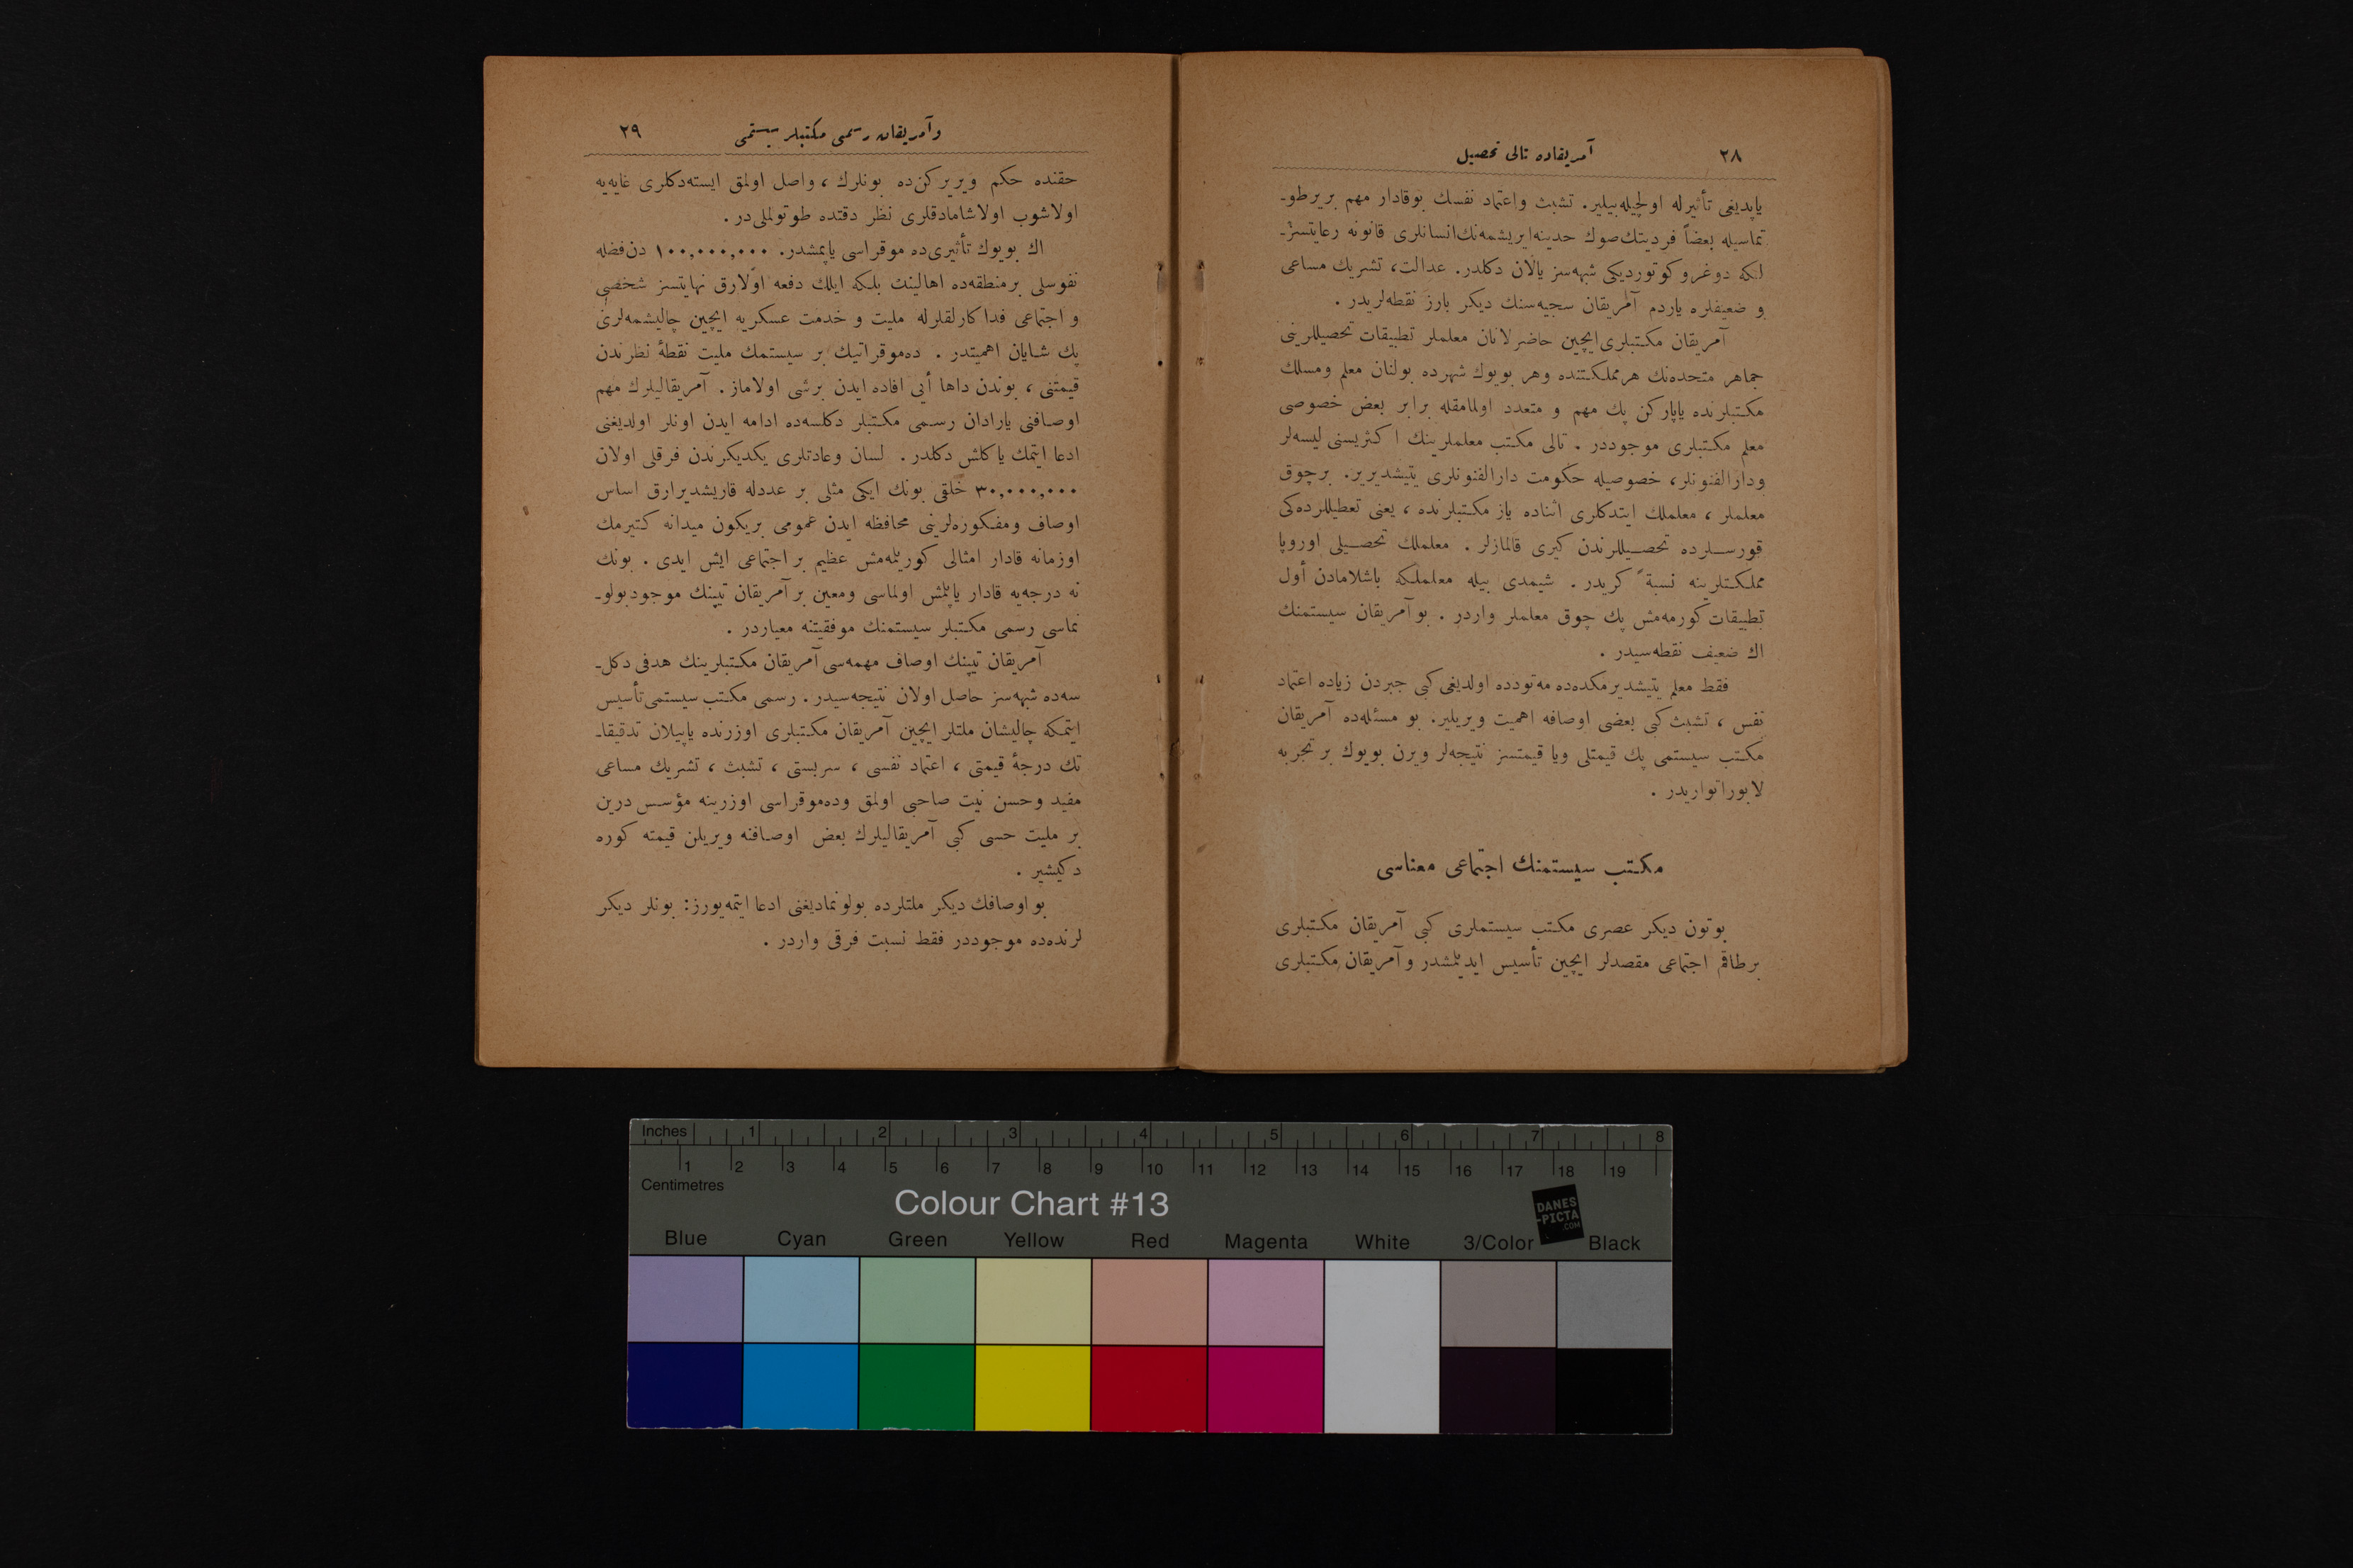 ٢٨
آمریقاده تالی تحصیل
یاپدیغی تأثیرله اولچیله‌بیلیر. تشبث واعتماد نفسك بوقادار مهم بریرطو-
تماسیله بعضاً فردیتك‌صوك حدینه‌ایریشمه‌نك‌انسانلری قانونه رعایتسز-
لكه دوغروكوتوردیكی شبهه‌سز یالان دكلدر. عدالت، تشریك مساعی
و ضعیفلره یاردم آمریقان سجیه‌سنك دیكر بارز نقطه‌لریدر .
آمریقان مكتبلری‌ایچین حاضرلانان معلملر تطبیقات تحصیللرینی
جماهر متحده‌نك هرمملكتنده وهر بویوك شهرده بولنان معلم ومسلك
مكتبلرنده یاپاركن پك مهم و متعدد اولمامقله برابر بعض خصوصی
معلم مكتبلری موجوددر . تالی مكتب معلملرینك اكثریسنی لیسه‌لر
ودارالفنونلر، خصوصیله حكومت دارالفنونلری یتیشدیریر. برچوق
معلملر ، معلملك ایتدكلری اثناده یاز مكتبلرنده ، یعنی تعطیللرده‌كی
قورسلرده تحصیللرندن كیری قالمازلر . معلملك تحصیلی اوروپا
مملكتلرینه نسبةً كریدر . شیمدی بیله معلملكه باشلامادن أول
تطبیقات كورمه‌مش پك چوق معلملر واردر . بوآمریقان سیستمنك
اك ضعیف نقطه‌سیدر .
فقط معلم یتیشدیرمكده‌ده مه‌تودده اولدیغی كبی جبردن زیاده اعتماد
نفس ، تشبث كبی بعضی اوصافه اهمیت ویریلیر. بو مسئله‌ده آمریقان
مكتب سیستمی پك قیمتلی ویا قیمتسز نتیجه‌لر ویرن بویوك بر تجربه
لابوراتواریدر .
مكتب سیستمنك اجتماعی معناسی
بوتون دیكر عصری مكتب سیستملری كبی آمریقان مكتبلری
برطاقم اجتماعی مقصدلر ایچین تأسیس ایدیلمشدر وآمریقان مكتبلری
وآمریقان رسمی مكتبلر سیستمی
٢٩
حقنده حكم ویریركن‌ده بونلرك ، واصل اولمق ایسته‌دكلری غایه‌یه
اولاشوب اولاشامادقلری نظر دقتده طوتولملی‌در .
اك بویوك تأثیری‌ده موقراسی یاپمشدر. ١٠٠,٠٠٠,٠٠٠ دن‌فضله
نفوسلی برمنطقه‌ده اهالینك بلكه ایلك دفعه اولارق نهایتسز شخصی
و اجتماعی فداكارلقلرله ملیت و خدمت عسكریه ایچین چالیشمه‌لری
پك شایان اهمیتدر . ده‌موقراتیك بر سیستمك ملیت نقطهٔ نظرندن
قیمتنی ، بوندن داها أیی افاده ایدن برشی اولاماز . آمریقالیلرك مهم
اوصافنی یارادان رسمی مكتبلر دكلسه‌ده ادامه ایدن اونلر اولدیغنی
ادعا ایتمك یاكلش دكلدر . لسان وعادتلری یكدیكرندن فرقلی اولان
٣٠,٠٠٠,٠٠٠ خلقی بونك ایكی مثلی بر عددله قاریشدیرارق اساس
اوصاف ومفكوره‌لرینی محافظه ایدن عمومی بریكون میدانه كتیرمك
اوزمانه قادار امثالی كوریلمه‌مش عظیم بر اجتماعی ایش ایدی . بونك
نه درجه‌یه قادار یاپلمش اولماسی ومعین بر آمریقان تیپنك موجودبولو-
نماسی رسمی مكتبلر سیستمنك موفقیتنه معیاردر .
آمریقان تیپنك اوصاف مهمه‌سی آمریقان مكتبلرینك هدفی دكل-
سه‌ده شبهه‌سز حاصل اولان نتیجه‌سیدر . رسمی مكتب سیستمی تأسیس
ایتمكه چالیشان ملتلر ایچین آمریقان مكتبلری اوزرنده یاپیلان تدقیقا-
تك درجهٔ قیمتی ، اعتماد نفسی ، سربستی ، تشبث ، تشریك مساعی
مفید وحسن نیت صاحبی اولمق وده‌موقراسی اوزرینه مؤسس درین
بر ملیت حسی كبی آمریقالیلرك بعض اوصافنه ویریلن قیمته كوره
دكیشیر .
بواوصافك دیكر ملتلرده بولونمادیغنی ادعا ایتمه‌یورز: بونلر دیكر
لرنده‌ده موجوددر فقط نسبت فرقی واردر .
Inches 1 2 3 4 5 6 7 8
1 2 3 4 5 6 7 8 9 10 11 12 13 14 15 16 17 18 19
Centimetres
Colour Chart #13
DANES
-PICTA
.COM
Blue Cyan Green Yellow Red Magenta White 3/Color Black